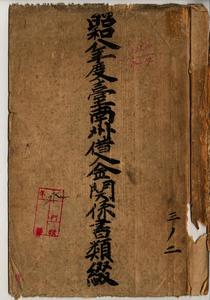 昭和八年度臺南州借入金関係書類綴
三ノ二
永